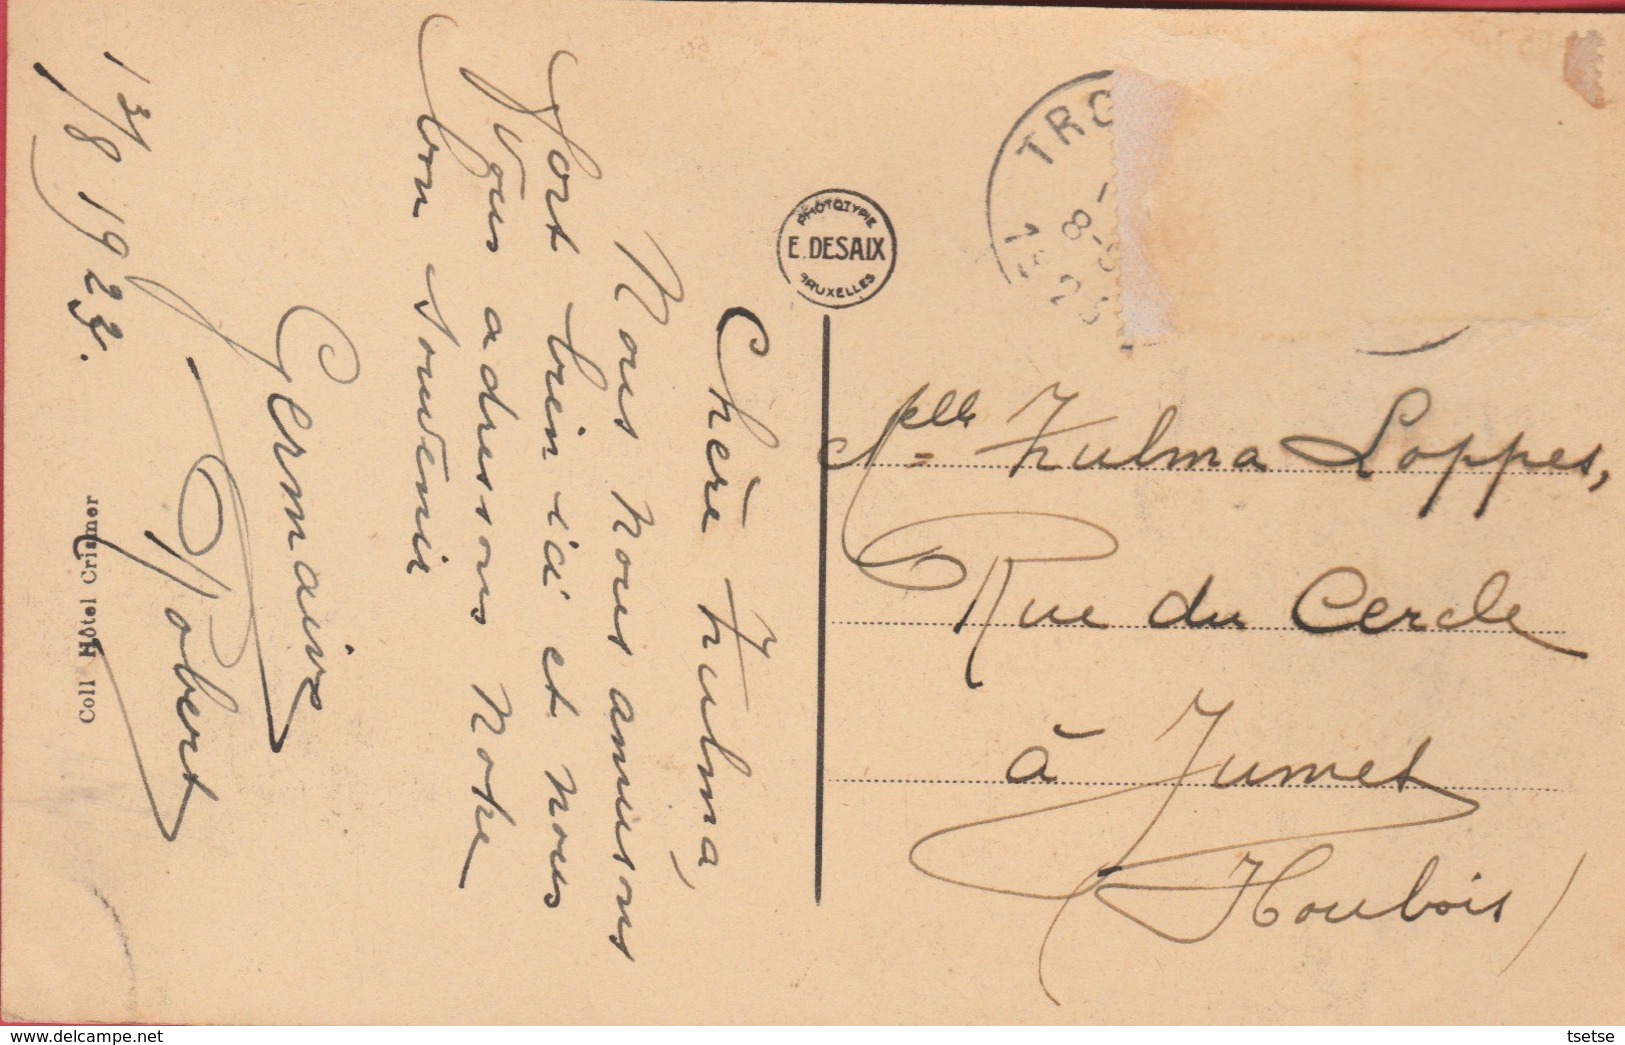 Chère Zulma,
Nous nous amusons
fort bien ici et nous
vous adressons notre
bon souvenir
Germaine
Robert
13/8 1923.
Coll Hôtel Crismer
PHOTOTYPIE
E. DESAIX
BRUXELLES
TRO
8-
Melle Zulma Loppes,
Rue du Cercle
à Jumet
(Houbois)
delcampe.net
tsetse